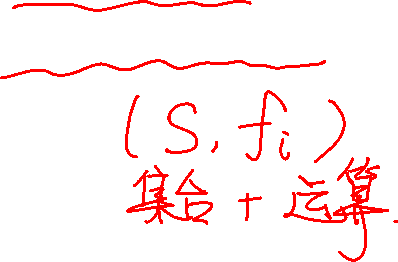 (S, fi)
集合 + 运算.